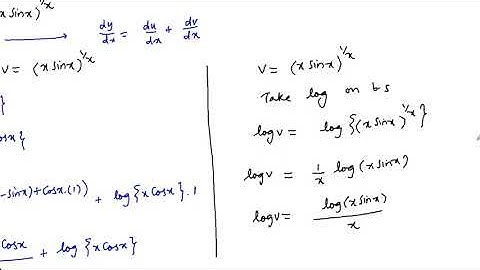 x sinx)^{1/x}
dy/dx = du/dx + dv/dx
v = (x sinx)^{1/x}
}
cosx}
-sinx) + cosx.(1)) + log{x cosx}.1
cosx + log{x cosx}
v = (x sinx)^{1/x}
Take log on b s
logv = log{(x sinx)^{1/x}}
logv = 1/x log(x sinx)
logv = log(x sinx)/x